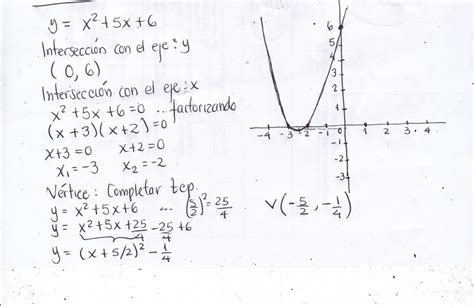 y = x² + 5x + 6
Intersección con el eje: y
(0, 6)
Intersección con el eje: x
x² + 5x + 6 = 0 ... factorizando
(x + 3)(x + 2) = 0
x + 3 = 0   x + 2 = 0
x₁ = -3   x₂ = -2
Vértice: Completar tcp.
y = x² + 5x + 6 ... (5/2)² = 25/4
y = x² + 5x + 25/4 - 25/4 + 6
y = (x + 5/2)² - 1/4
V(-5/2, -1/4)
6
5
4
3
2
1
-4 -3 -2 -1 1 2 3 4
-1
-2
-3